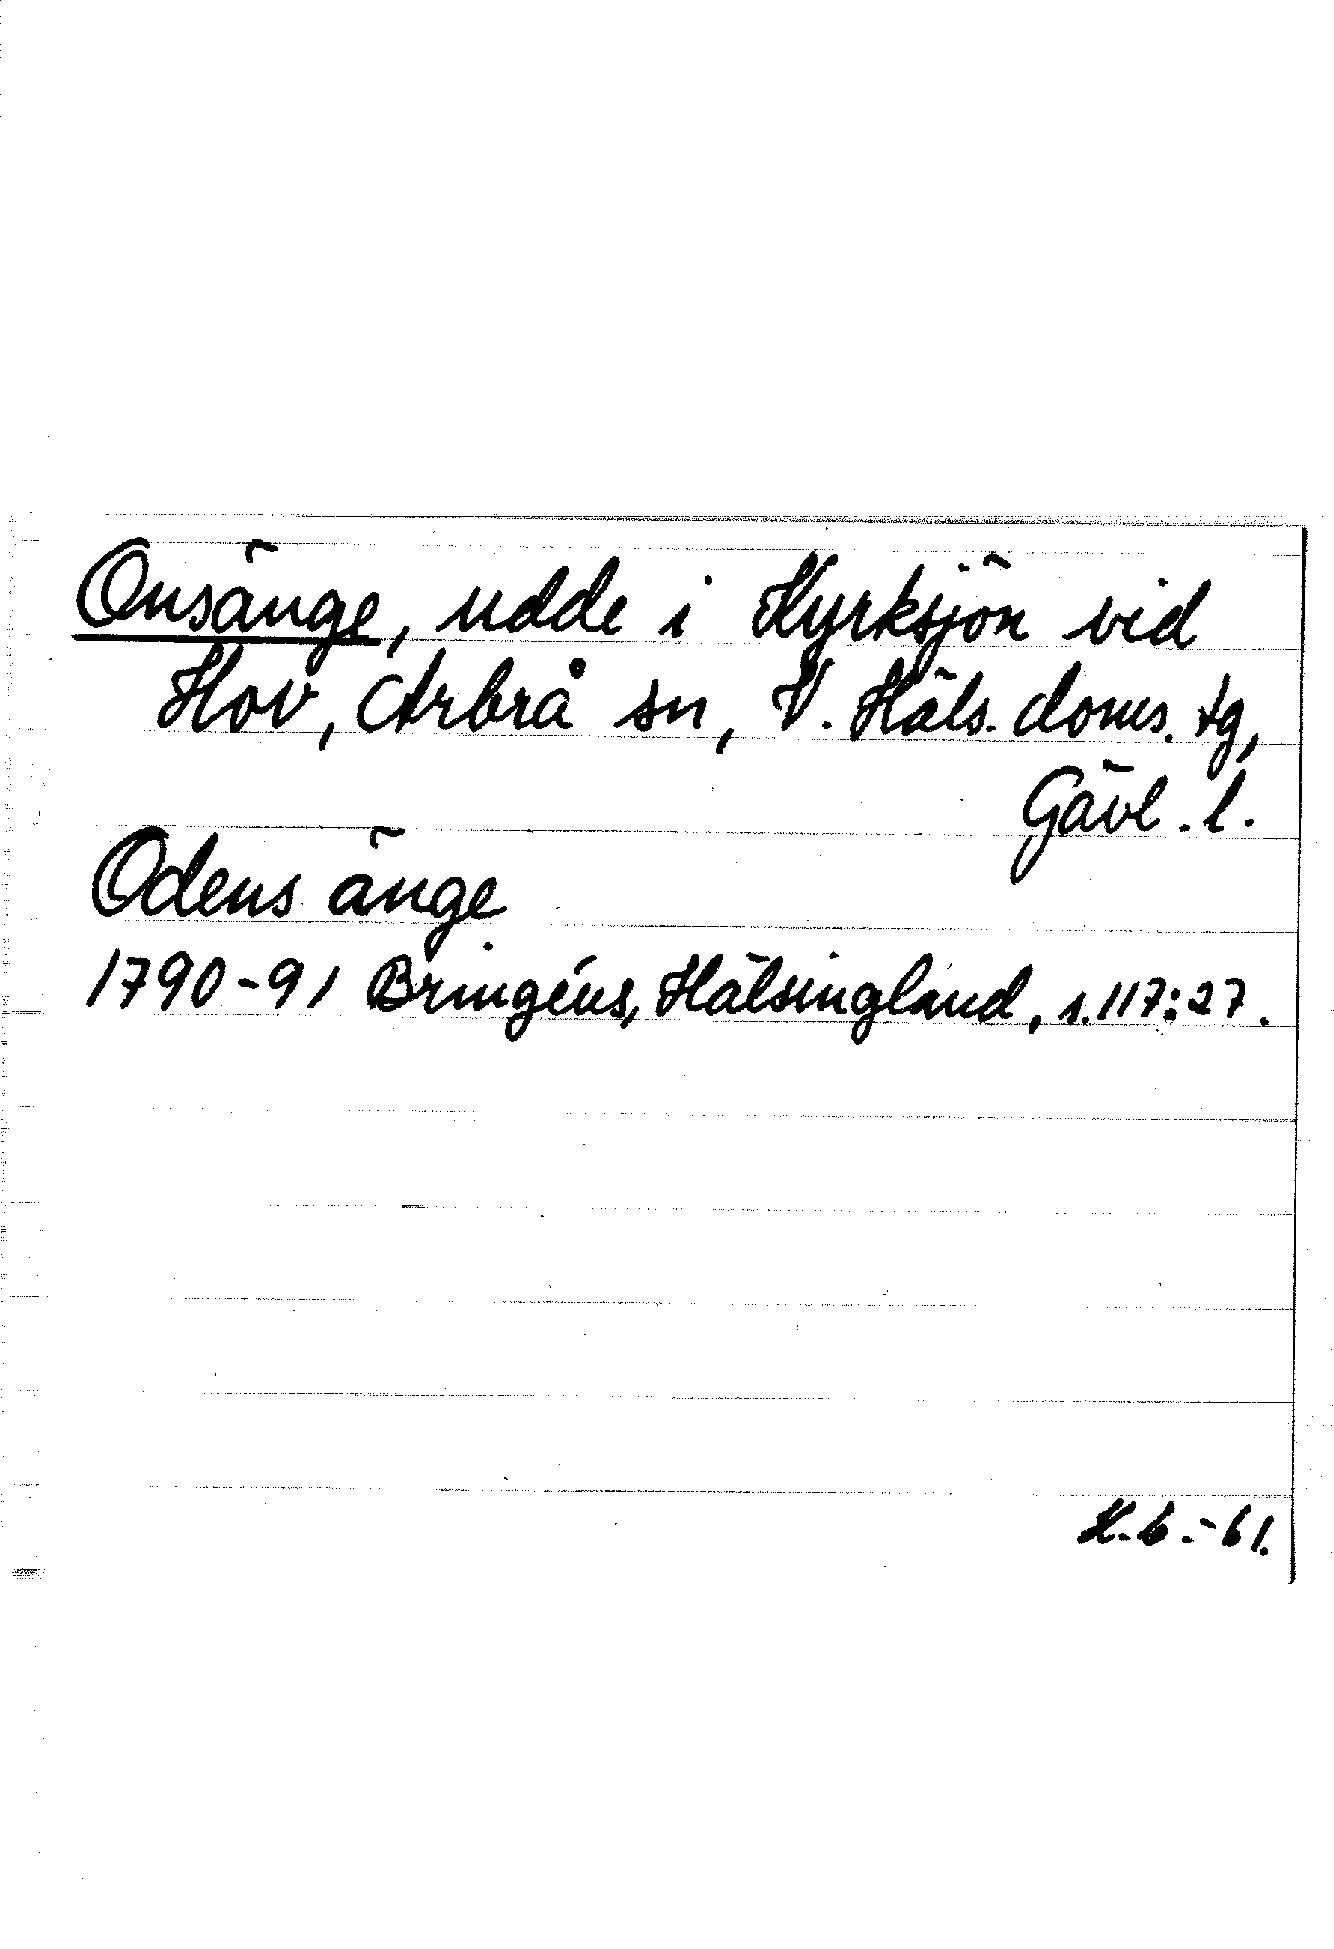 Onsänge, udde i Kyrksjön vid
Hov, Arbrå sn, V. Häls. doms. tg,
Gävl. l.
Odens änge
1790-91 Bringéus, Hälsingland, s. 117:27.
K.b.-61.